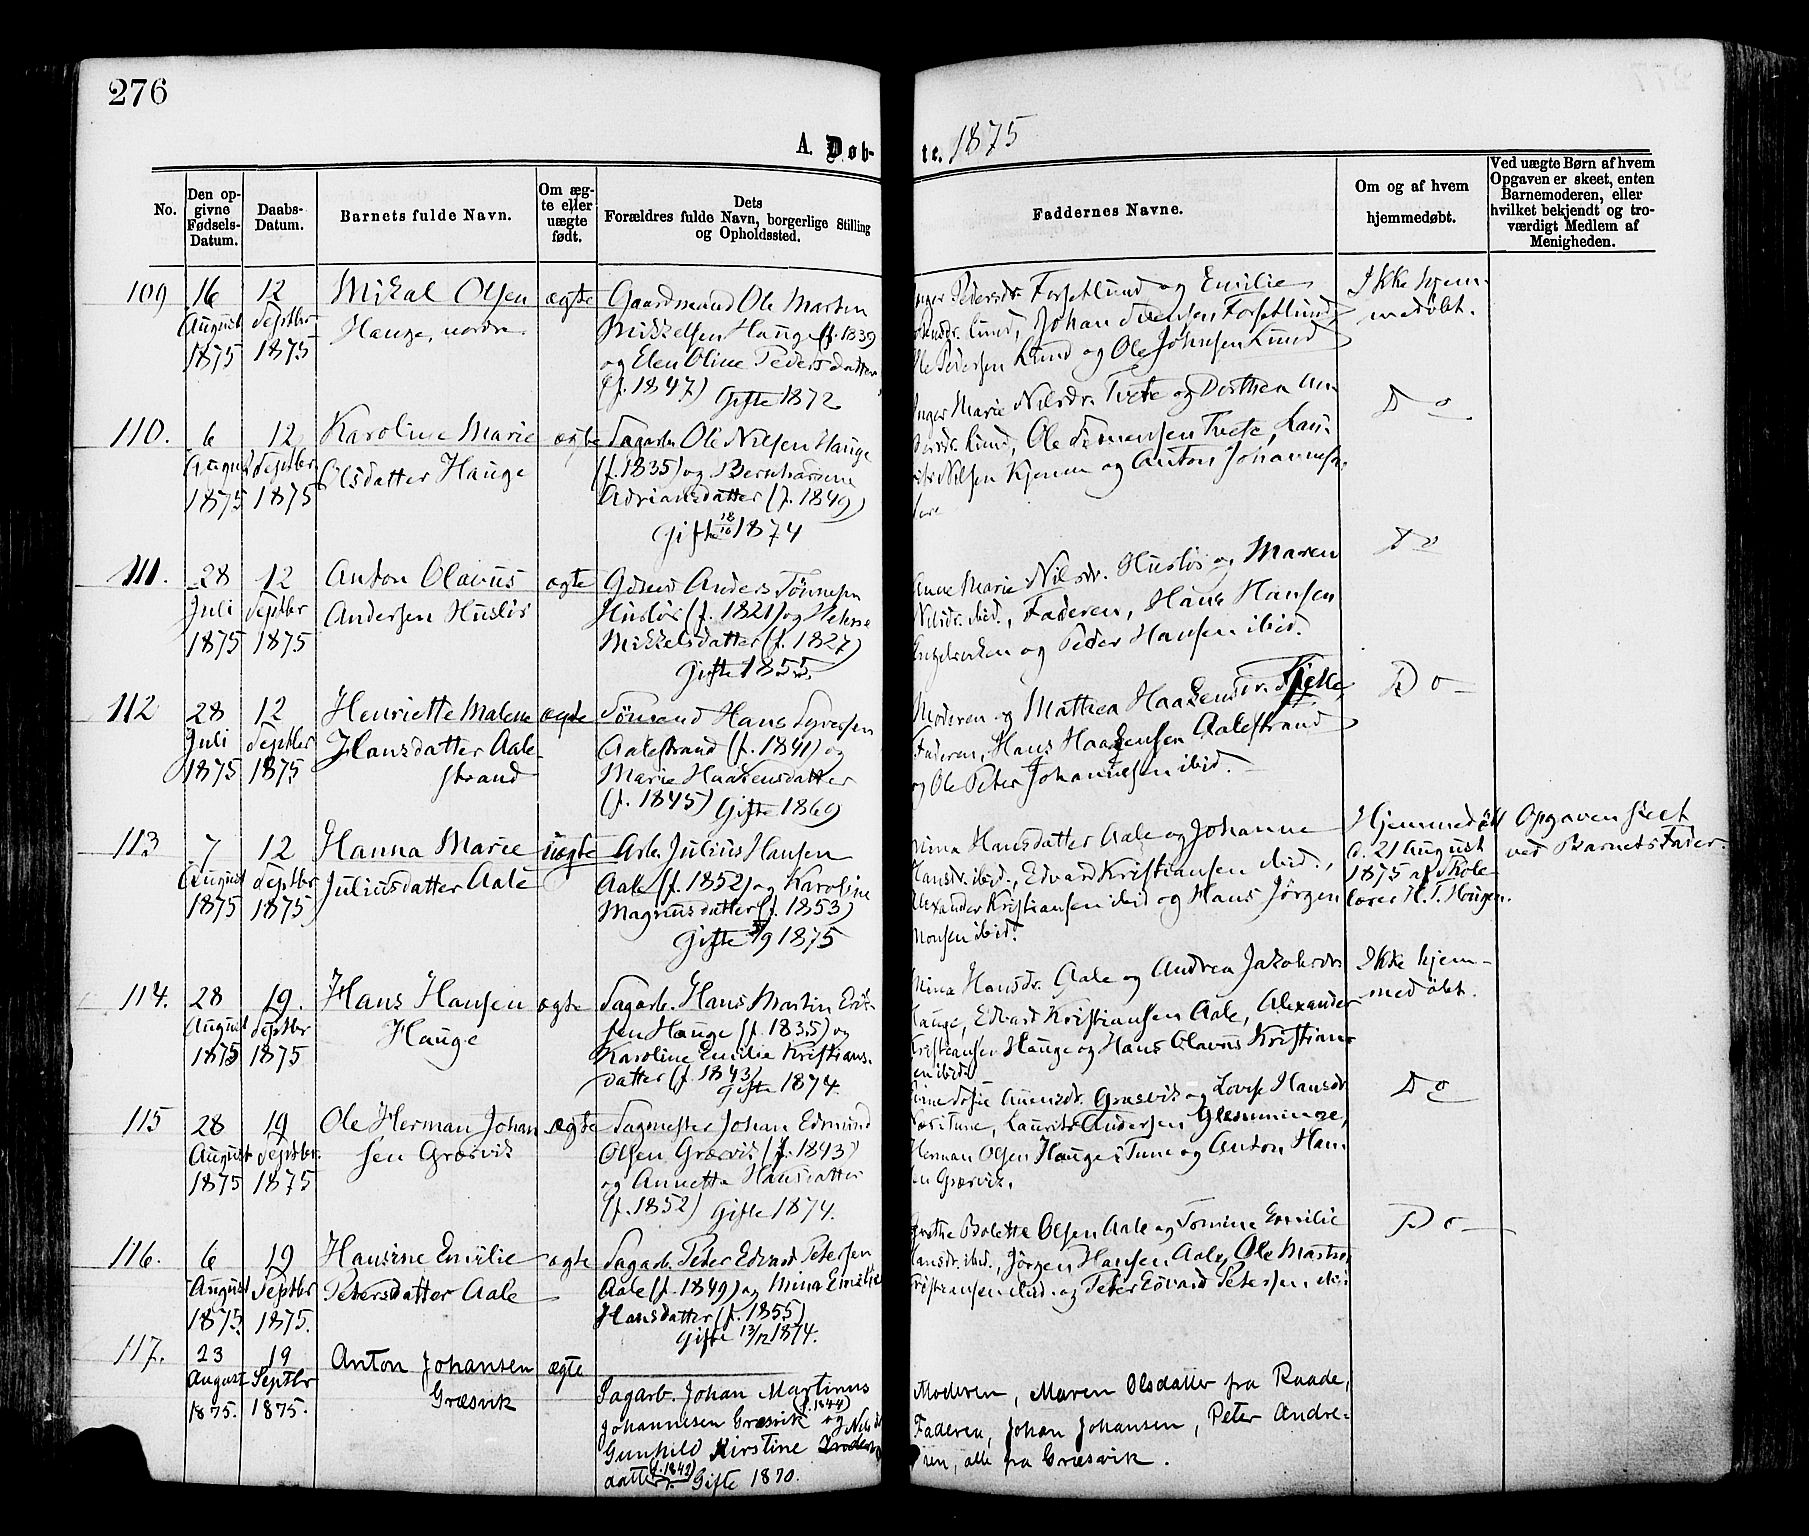 276
A. Døb-
te. 1875
No.
Den op-
givne
Fødsels-
Datum.
Daabs-
Datum.
Barnets fulde Navn.
Om æg-
te eller
uægte
født.
Dets
Forældres fulde Navn, borgerlige Stilling
og Opholdssted.
Faddernes Navne.
Om og af hvem
hjemmedøbt.
Ved uægte Børn af hvem
Opgaven er skeet, enten
Barnemoderen, eller
hvilket bekjendt og tro-
værdigt Medlem af
Menigheden.
109
16
August
1875
12
Septbr
1875
Mikal Olsen
Hauge, nordre
ægte
Gaardmand Ole Martin
Mikkelsen Hauge (f. 1839
og Elen Oline Pedersdatter
(f. 1847) Gifte 1872
Pedersdr. Forsetlund og Emilie
Lund, Johan Svensen Forsetlund
Pedersen Lund og Ole Johnsen Lund
Ikke hjem-
medøbt.
110.
6
August
1875
12
Septbr
1875
Karoline Marie
Olsdatter Hauge
ægte
Sagarb. Ole Nilsen Hauge
(f. 1835) og Bernhardine
Adriansdatter (f. 1849)
Gifte 18/10 1874
Inger Marie Nilsdr. Tvete og Dorthea An-
Lund, Ole Simensen Tvete, Lau-
Nilsen Kjenne og Anton Johannes-
Do
111.
28
Juli
1875
12
Septbr
1875
Anton Olavus
Andersen Husløs
ægte
Gdmd Anders Tønnesen
Husløs (f. 1821) og Helene
Mikkelsdatter (f. 1827)
Gifte 1855.
Anne Marie Nilsdr. Husløs og Maren
Nilsdr. ibid., Faderen, Hans Hansen
Engelsviken og Peder Hansen ibid.
Do
112
28
Juli
1875
12
Septbr
1875
Henriette Malene
Hansdatter Aale
strand
ægte
Tømmd Hans Syversen
Aalestrand (f. 1841) og
Marie Haakensdatter
(f. 1845) Gifte 1869
Moderen og Mathea Haakensdr. Kjelle
Faderen, Hans Haakensen Aalestrand
og Ole Peter Johannesen ibid.
Do
113
7
August
1875
12
Septbr
1875
Hanna Marie
Juliusdatter Aale
uægte
Arb. Julius Hansen
Aale (f. 1852) og Karoline
Magnusdatter (f. 1853)
Gifte 5/9 1875
Mina Hansdatter Aale og Johanne
Hansdr. ibid., Edvard Kristiansen ibid.,
Alexander Kristiansen ibid og Hans Jørgen
Monsen ibid.
Hjemmedøbt
d. 21 August
1875 af Skole-
lærer H. T. Hougen.
Opgaven skeet
ved Barnets Fader.
114.
28
August
1875
19
Septbr
1875
Hans Hansen
Hauge
ægte
Sagarb. Hans Martin Erik-
sen Hauge (f. 1835) og
Karoline Emilie Kristians-
datter (f. 1843)
Gifte 1874.
Mina Hansdr. Aale og Andrea Jakobsdr
Hauge, Edvard Kristiansen Aale, Alexander
Kristiansen Hauge og Hans Olavus Kristian-
sen ibid.
Ikke hjem-
medøbt.
115
28
August
1875
19
Septbr.
1875
Ole Herman Johan
sen Græsvik
ægte
Sagmester Johan Edmund
Olsen Græsvik (f. 1843)
og Annette Hansdatter
(f. 1852) Gifte 1874.
Græsvik og Lovise Hansdr
i Tune, Laurits Andersen Glemminge,
Herman Olsen Hauge i Tune og Anton Han
sen Græsvik.
Do
116.
6
August
1875
19
Septbr
1875.
Hansine Emilie
Petersdatter Aale
ægte
Sagarb. Peter Edvard Petersen
Aale (f. 1849) og Mina Emilie
Hansdatter (f. 1855)
Gifte 13/12 1874.
Grethe Bolette Olsen Aale og Tomine Emilie
Hansdr. ibid., Jørgen Hansen Aale, Ole Martin
Kristiansen ibid. og Peter Edvard Petersen ibid
Do
117.
23
August
1875.
19
Septbr
1875.
Anton Johansen
Græsvik
ægte
Sagarb. Johan Martinus
Johannesen Græsvik (f. 1844) og
Gunhild Kirstine Nils
datter (f. 1842) Gifte 1870.
Moderen, Maren Olsdatter fra Raade,
Faderen, Johan Johansen, Peter Andre-
sen, alle fra Græsvik.